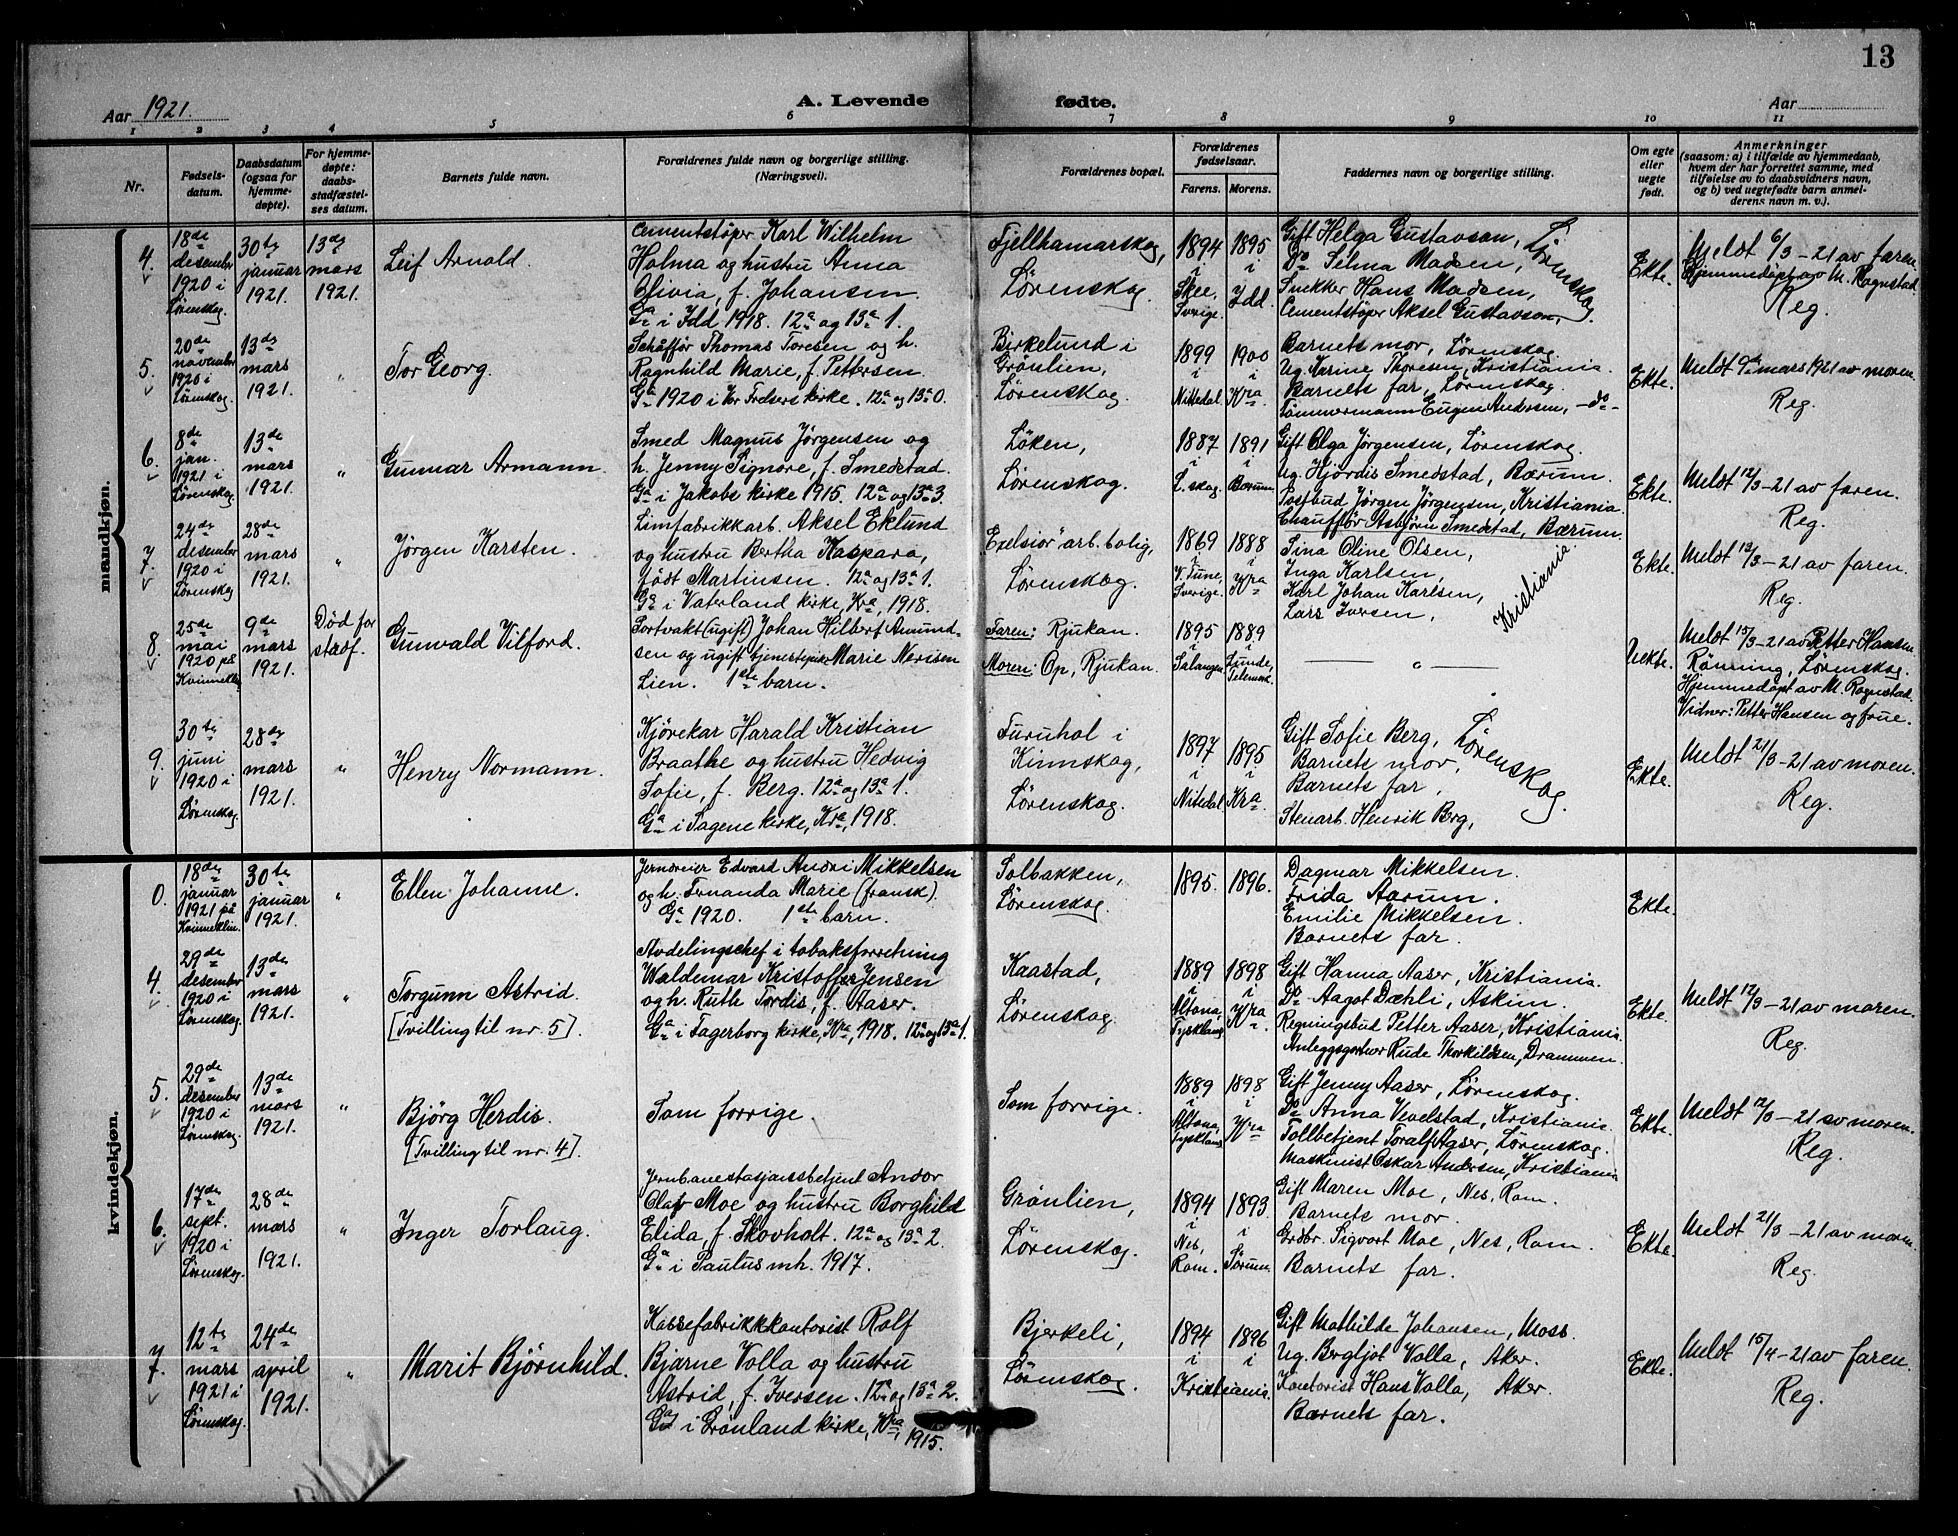 13
Aar 1921.
A. Levende fødte.
Aar
1 2 3 4 5 6 7 8 9 10 11
Nr.
Fødsels-
datum.
Daabsdatum
(ogsaa for
hjemme-
døpte).
For hjemme-
døpte:
daabs-
stadfæstel-
ses datum.
Barnets fulde navn.
Forældrenes fulde navn og borgerlige stilling.
(Næringsvei).
Forældrenes bopæl.
Forældrenes
fødselsaar.
Farens. Morens.
Faddernes navn og borgerlige stilling.
Om egte
eller
uegte
født.
Anmerkninger
(saasom: a) i tilfælde av hjemmedaab,
hvem der har forrettet samme, med
tilføielse av to daabsvidners navn,
og b) ved uegtefødte barn anmel-
derens navn m. v.).
mandkjøn.
4.
18de
desember
1920 i
Lørenskog.
30te
januar
1921.
13de
mars
1921.
Leif Arnold.
Cementstøper Karl Wilhelm
Holma og hustru Anna
Olivia, f. Johansen.
Ga i Idd 1918. 12a og 13a 1.
Fjellhamarskog,
Lørenskog.
1894
i
Skee,
Sverige.
1895
i
Idd.
Gift Helga Gustavson,
Do Selma Madsen,
Snekker Hans Madsen,
Cementstøper Aksel Gustavson,
Lørenskog.
Ekte.
Meldt 6/3-21 av faren.
Hjemmedøpt av M. Rognstad.
Reg.
5.
20de
november
1920 i
Lørenskog.
13de
mars
1921.
"
Tor Georg.
Schåffør Thomas Toresen og h.
Ragnhild Marie, f. Pettersen.
Ga 1920 i Vor Frelsers kirke. 12a og 13a 0.
Birkelund i
Grønlien,
Lørenskog.
1899
i
Nittedal.
1900
i
Kra.
Barnets mor, Lørenskog.
Ug. Karine Thoresen, Kristiania.
Barnets far, Lørenskog.
Tømmermann Eugen Andersen, -do-
Ekte.
Meldt 9de mars 1921 av moren.
Reg.
6.
8de
jan.
1921 i
Lørenskog.
13de
mars
1921.
"
Gunnar Armann.
Smed Magnus Jørgensen og
h. Jenny Signore, f. Smedstad.
Ga i Jakobs kirke 1915. 12a og 13a 3.
Løken,
Lørenskog.
1887
i
L.skog.
1891
i
Bærum.
Gift Olga Jørgensen, Lørenskog.
Ug. Hjørdis Smedstad, Bærum.
Postbud Jørgen Jørgensen, Kristiania.
Chauffør Asbjørn Smedstad, Bærum.
Ekte.
Meldt 12/3-21 av faren.
Reg.
7.
24de
desember
1920 i
Lørenskog
28de
mars
1921.
"
Jørgen Karsten.
Limfabrikkarb. Aksel Eklund
og hustru Bertha Kaspara,
født Martinsen. 12a og 13a 1.
Ga i Vaterland kirke, Kra, 1918.
"Exelsiör" arb. bolig,
Lørenskog.
1869
i
V. Tune,
Sverige.
1888
i
Kra
Sina Oline Olsen,
Inga Karlsen,
Karl Johan Karlsen,
Lars Iversen,
Kristiania.
Ekte.
Meldt 13/3-21 av faren.
Reg.
8.
25de
mai
1920 på
Kvinneklin.
9de
mars
1921.
Død før
stadf.
Gunvald Vilford.
Portvakt (ugift) Johan Hilbert Amund-
sen og ugift tjenestepike Marie Nerisen
Lien. 1ste barn.
Faren: Rjukan.
Moren: Op, Rjukan.
1895
i
Salangen.
1889
i
Lunde,
Telemark.
— " —
Uekte.
Meldt 15/3-21 av Petter Hansen
Rønning, Lørenskog.
Hjemmedøpt av M. Rognstad.
Vidner: Petter Hansen og frue.
9.
30te
juni
1920 i
Lørenskog.
28de
mars
1921.
"
Henry Normann.
Kjørekar Harald Kristian
Braathe og hustru Hedvig
Sofie, f. Berg. 12a og 13a 1.
Ga i Sagene kirke, Kra, 1918.
Furuhol i
Kinnskog,
Lørenskog.
1897
i
Nittedal
1895
i
Kra.
Gift Sofie Berg,
Barnets mor,
Barnets far,
Stenarb. Henrik Berg,
Lørenskog.
Ekte.
Meldt 21/3-21 av moren.
Reg.
kvindekjøn.
0.
18de
januar
1921 på
Kvinneklin.
30te
januar
1921.
"
Ellen Johanne.
Jerndreier Edvard Andri Mikkelsen
og h. Fernanda Marie (fransk).
Ga 1920. 1ste barn.
Solbakken,
Lørenskog.
1895.
1896.
Dagmar Mikkelsen.
Frida Aarum.
Emilie Mikkelsen.
Barnets far.
Ekte.
4.
29de
desember
1920 i
Lørenskog.
13de
mars
1921.
"
Torgunn Astrid.
[Tvilling til nr. 5].
Avdelingschef i tobaksforretning
Waldemar Kristoffer Jensen
og h. Ruth Tordis, f. Aaser.
Ga i Fagerborg kirke, Kra, 1918. 12a og 13a 1.
Kaastad,
Lørenskog.
1889
i
Altona,
Tyskland.
1898
i
Kra
Gift Hanna Aaser, Kristiania.
Do Aagot Dæhli, Askim.
Regningsbud Petter Aaser, Kristiania.
Anleggsgartner Rude Thorkildsen, Drammen.
Ekte.
Meldt 12/3-21 av moren.
Reg.
5.
29de
desember
1920 i
Lørenskog.
13de
mars
1921.
"
Bjørg Herdis.
[Tvilling til nr. 4].
Som forrige.
Som forrige.
1889
i
Altona,
Tyskland
1898
i
Kra
Gift Jenny Aaser, Lørenskog.
Do Anna Vevelstad, Kristiania.
Tollbetjent Toralf Aaser, Lørenskog.
Maskinist Oskar Andersen, Kristiania
Ekte.
Meldt 12/3-21 av moren.
Reg.
6.
17de
sept.
1920 i
Lørenskog.
28de
mars
1921.
"
Inger Torlaug.
Jernbanestasjonsbetjent Andor
Olaf Moe og hustru Borghild
Elida, f. Skovholt. 12a og 13a 2.
Ga i Paulus mh. 1917.
Grønlien,
Lørenskog.
1894
i
Nes,
Rom.
1893.
i
Sørum.
Gift Maren Moe, Nes, Rom.
Barnets mor.
Grdbr. Sigvart Moe, Nes, Rom.
Barnets far.
Ekte.
Meldt 21/3-21 av moren.
Reg.
7.
12te
mars
1921 i
Lørenskog.
24de
april
1921.
"
Marit Bjørnhild.
Kassefabrikkkontorist Rolf
Bjarne Volla og hustru
Astrid, f. Iversen. 12a og 13a 2.
Ga i Grønland kirke, Kra, 1915.
Bjerkeli,
Lørenskog.
1894
i
1896
i
Kristiania.
Gift Mathilde Johansen, Moss.
Ug. Bergljot Volla, Aker.
Kontorist Hans Volla, Aker.
Barnets far.
Ekte.
Meldt 15/4-21 av faren.
Reg.